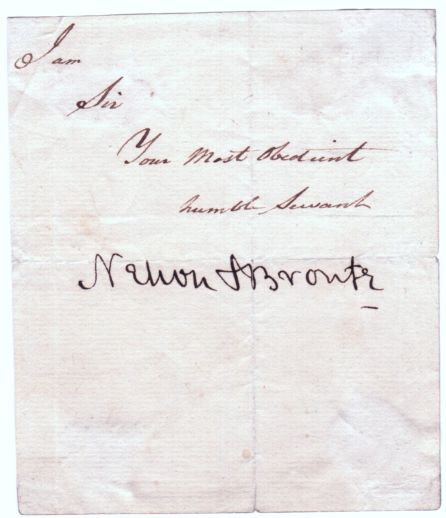 I am
Sir
Your Most Obedient
humble Servant
Nelson & Bronte